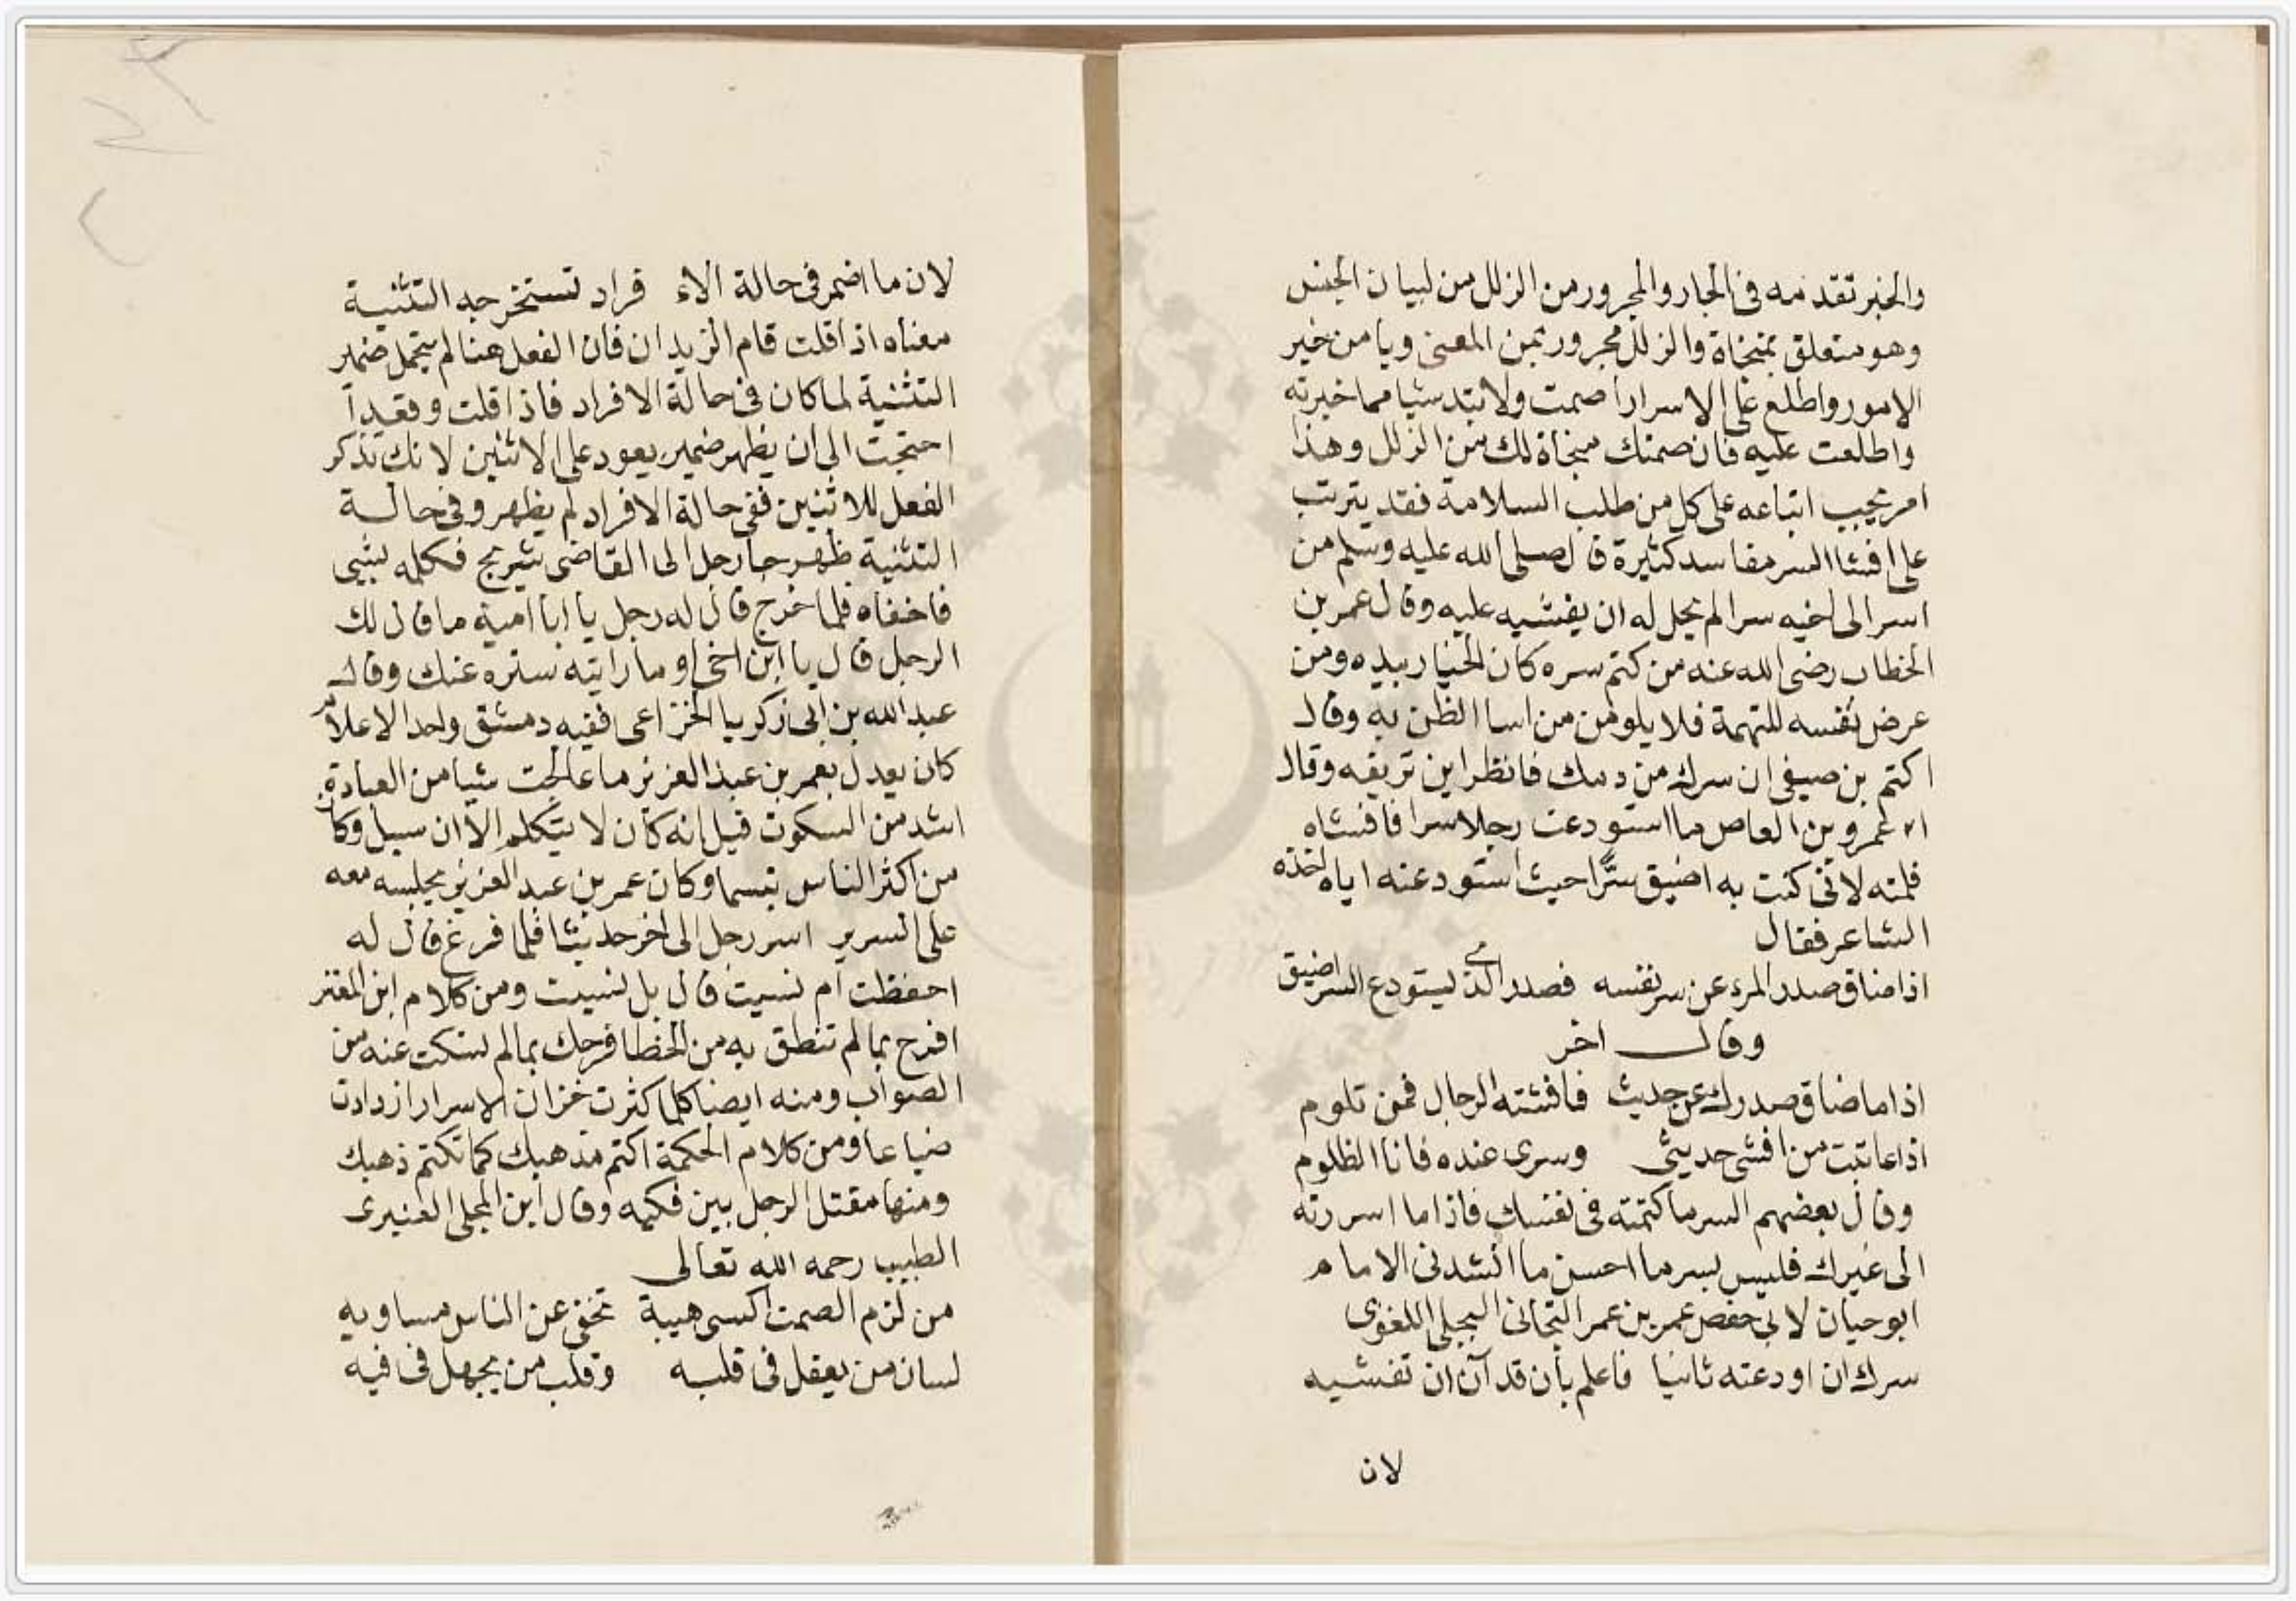 والخبر تقدمه في الجار والمجرور من الزلل من لبيان الجنس
وهو متعلق بمنجاة والزلل مجرور بمن المعنى ويا من خبر
الامور واطلع على الاسرار اصمت ولا تبتد شيا مما خبرته
واطلعت عليه فان صمتك منجاة لك من الزلل وهذا
امر يجب اتباعه على كل من طلب السلامة فقد يترتب
على افشا السر مفاسد كثيرة قال صلى الله عليه وسلم من
اسر الى اخيه سرا لم يحل له ان يفشيه عليه وقال عمر بن
الخطاب رضى الله عنه من كتم سره كان الخيار بيده ومن
عرض نفسه للتهمة فلا يلومن من اسا الظن به وقال
اكتم بن صيفى ان سرك من دمك فانظر اين تريقه وقال
عمرو بن العاص ما استودعت رجلا سرا فافشاه
فلمته لانى كنت به اضيق سرًّا حيث استودعته اياه اخذه
الشاعر فقال
اذا ضاق صدر المرء عن سر نفسه فصدر الذى ليستودع السر اضيق
وقال اخر
اذا ما ضاق صدرك عن حديث فافشته الرجال فمن تلوم
اذا عاتبت من افشى حديثى وسرى عنده فانا الظلوم
وقال بعضهم السر ما كتمته فى نفسك فاذا ما اسررته
الى غيرك فليس بسر ما احسن ما انشدنى الامام
ابو حيان لابى حفص عمر بن عمر التجانى البجلى اللغوى
سرك ان اودعته ثانيا فاعلم بأن قد آن ان تفشيه
لان
لان ما اضمر فى حالة الاء فراد تستخرجه التثنية
معناه اذا قلت قام الزيدان فان الفعل هنا لم يتحمل ضمير
التثنية لما كان فى حالة الافراد فاذا قلت وقعدآ
احتجت الى ان يظهر ضمير يعود على الاثنين لانك تذكر
الفعل للاثنين ففى حالة الافراد لم يظهر وفى حالة
التثنية ظهر جا رجل الى القاضى شريح فكلمه بشى
فاخفاه فلما خرج قال له رجل يا ابا امية ما قال لك
الرجل قال يا ابن اخى او ما رايته ستره عنك وقال
عبد الله بن ابى زكريا الخزاعى فقيه دمشق واحد الاعلام
كان يعدل بعمر بن عبد العزيز ما عالجت شيا من العبادة
اشد من السكوت قيل انه كان لا يتكلم الا ان سيل وكان
من اكثر الناس تبسما وكان عمر بن عبد العزيز يجلسه معه
على السرير اسر رجل الى اخر حديثا فلما فرغ قال له
احفظت ام نسيت قال بل نسيت ومن كلام ابن المعتز
افرح بما لم تنطق به من الخطا فرحك بما لم تسكت عنه من
الصواب ومنه ايضا كلما كثرت خزان الاسرار ازدادت
ضياعا ومن كلام الحكمة اكتم مذهبك كما تكتم ذهبك
ومنها مقتل الرجل بين فكيه وقال ابن المجلى العنبرى
الطبيب رحمه الله تعالى
من لزم الصمت اكسى هيبة تخفى عن الناس مساويه
لسان من يعقل فى قلبه وقلب من يجهل فى فيه